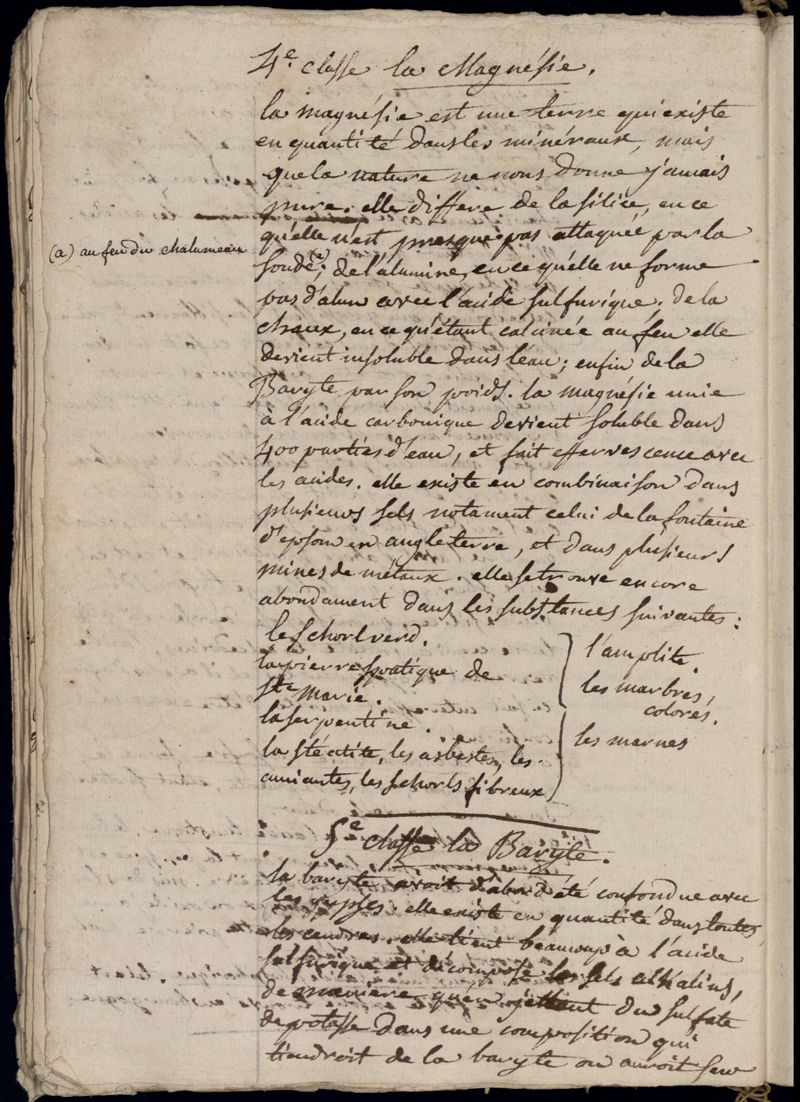 4.e classe la Magnésie.
la magnésie est une terre qui existe
en quantité dans les minéraux, mais
que la nature ne nous donne jamais
pure. elle differe de la silice, en ce
qu'elle n'est presque pas attaquée par la
(a) au feu du chalumeau
soude (a); de l'alumine, en ce qu'elle ne forme
pas d'alun avec l'acide sulfurique. de la
chaux, en ce qu'étant calcinée au feu elle
devient insoluble dans l'eau; enfin de la
Baryte par son poids. la magnésie unie
à l'acide carbonique devient soluble dans
400 parties d'eau, et fait effervescence avec
les acides. elle existe en combinaison dans
plusieurs sels notament celui de la fontaine
d'epsom en angleterre, et dans plusieurs
mines de métaux. elle se trouve encore
abondament dans les substances suivantes:
le schorl verd.
la pierre spatique de
Ste marie.
la serpentine.
la stéatite, les asbestes, les
amiantes, les schorls fibreux
l'amplite
les marbres,
colorés.
les marnes
5e classe la Baryte.
la baryte avoit d'abord été confondue avec
les gypses. elle existe en quantité dans toutes
les cendres. elle tient beaucoup à l'acide
sulfurique et décompose les sels alkalins,
de manière qu'en jettant du sulfate
de potasse dans une composition qui
tiendroit de la baryte on auroit